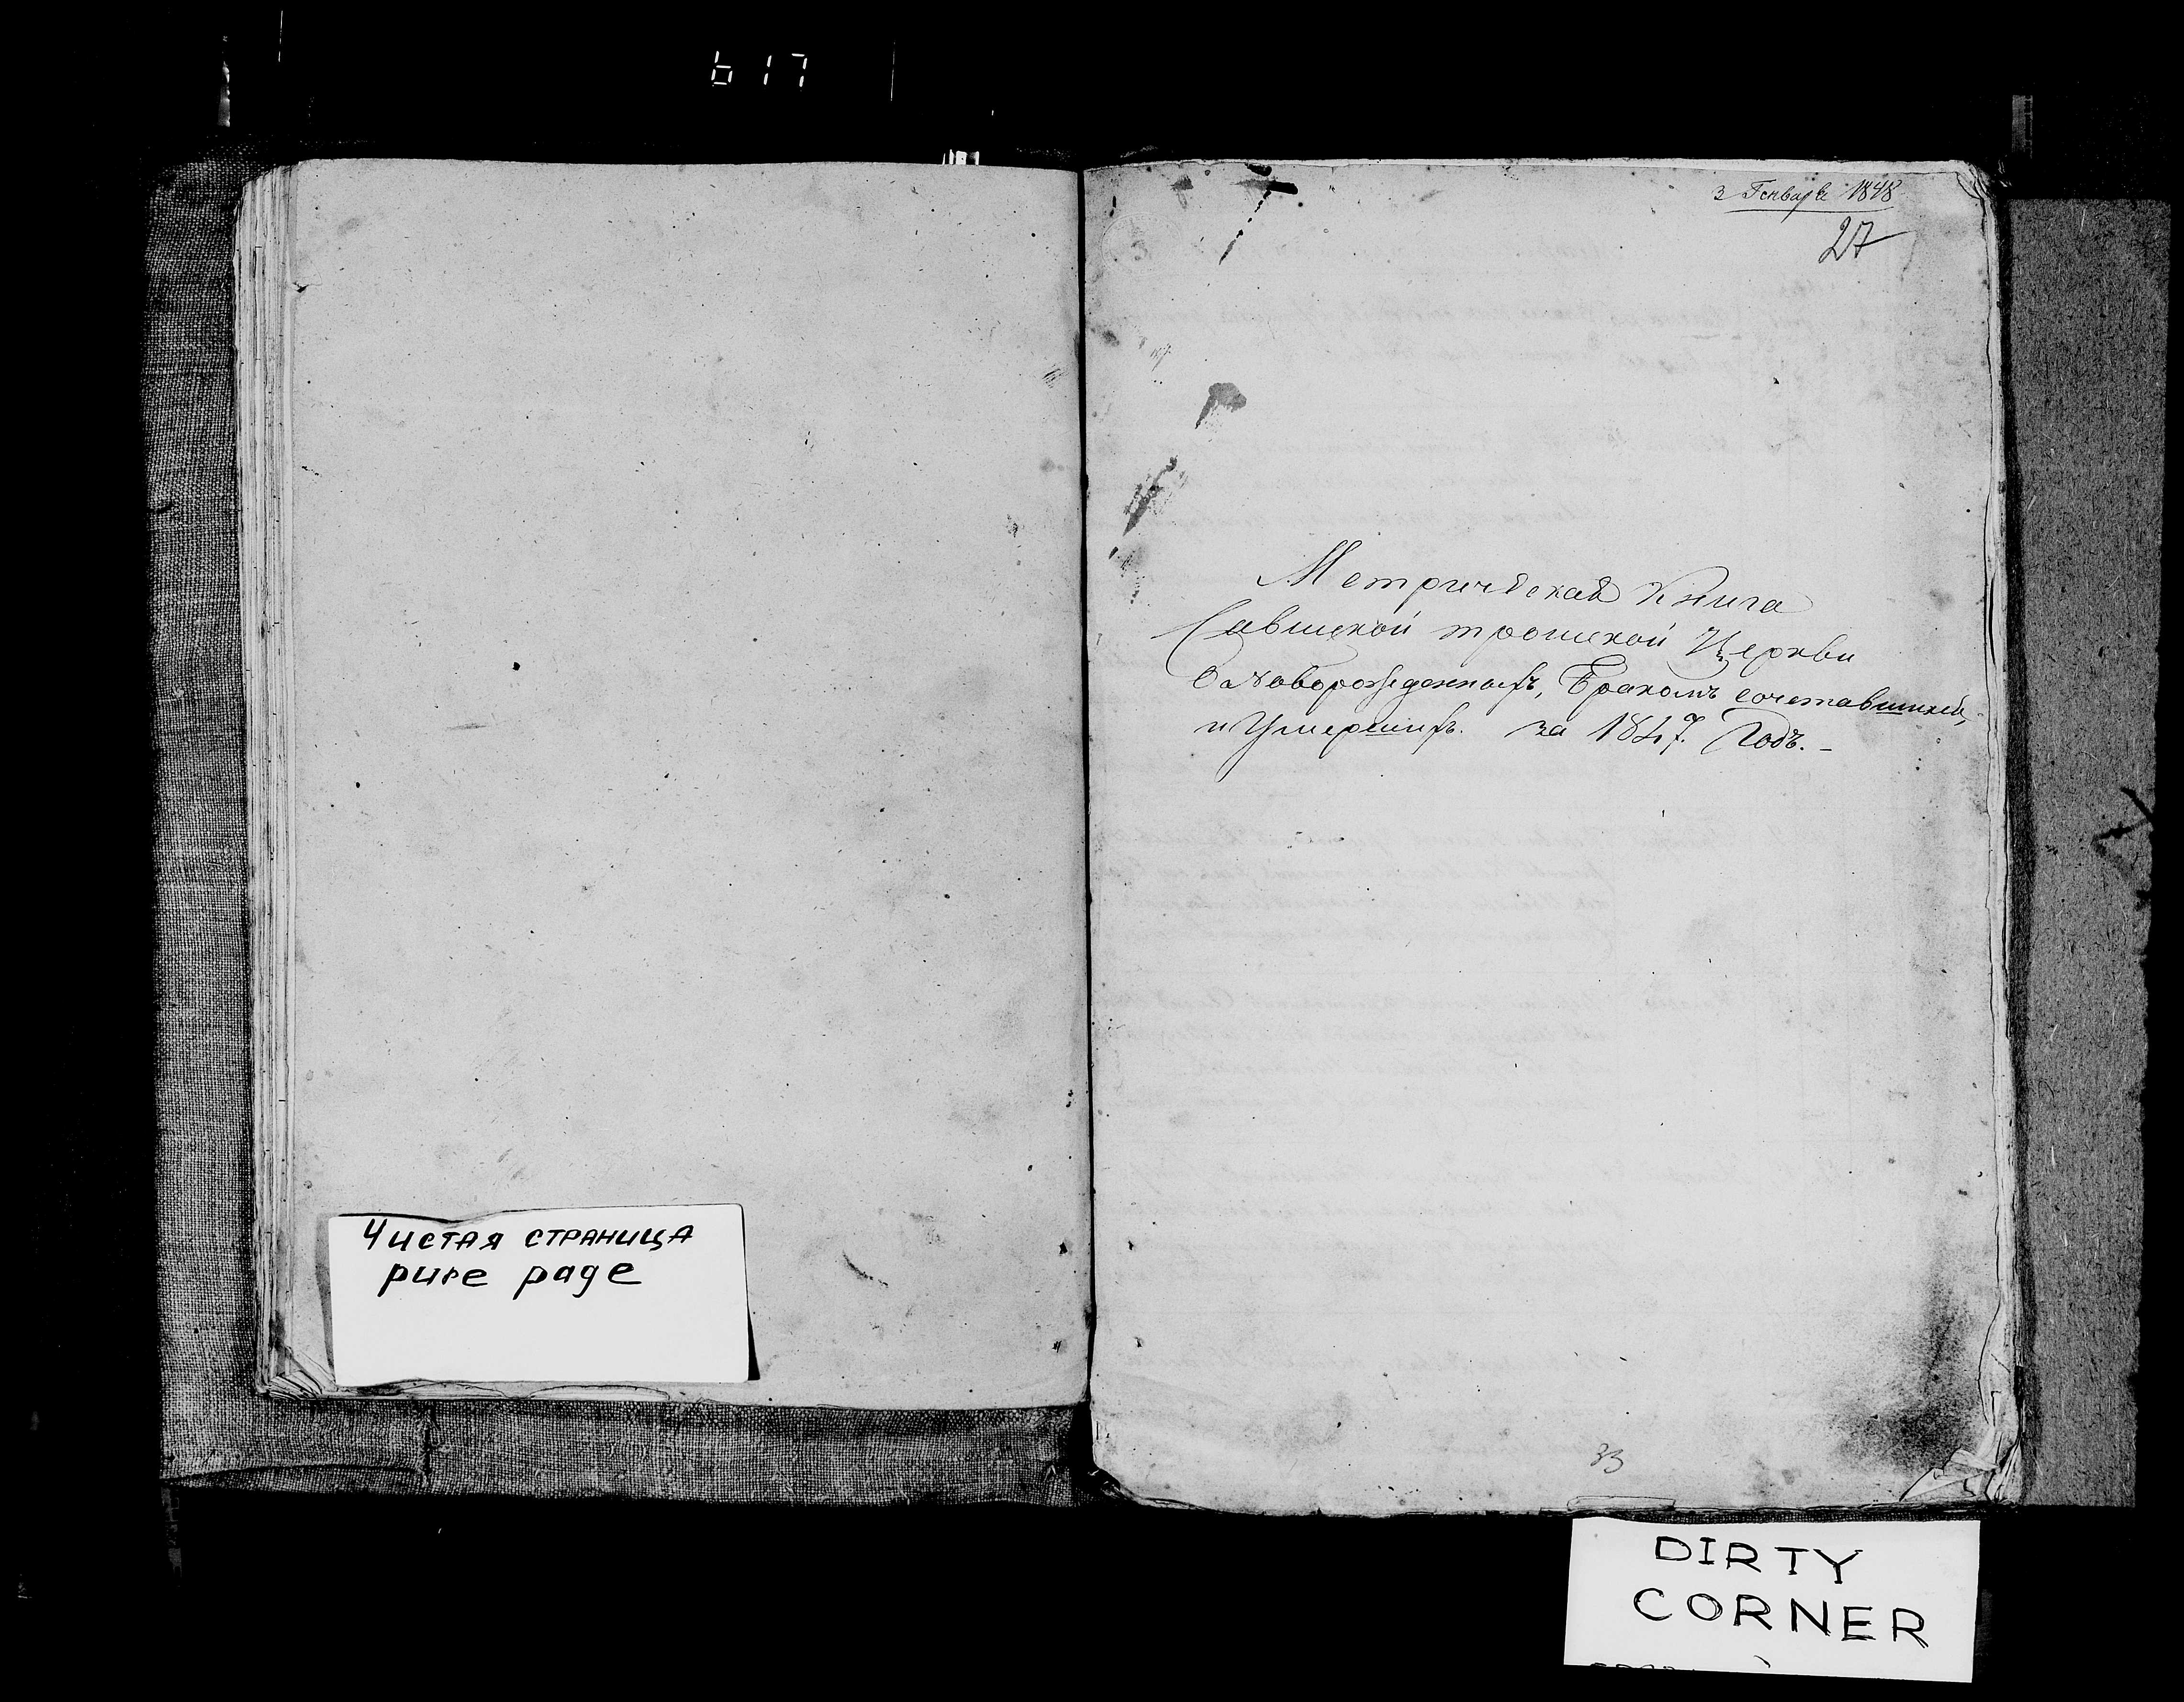 617
3 Генваря 1848
27
Метрическая Книга
троицкой Церкви
О Новорожденныхъ, Бракомъ сочетавшихся,
и Умершихъ. за 1847. Годъ. -
Чистая страница
pure page
33
DIRTY
CORNER